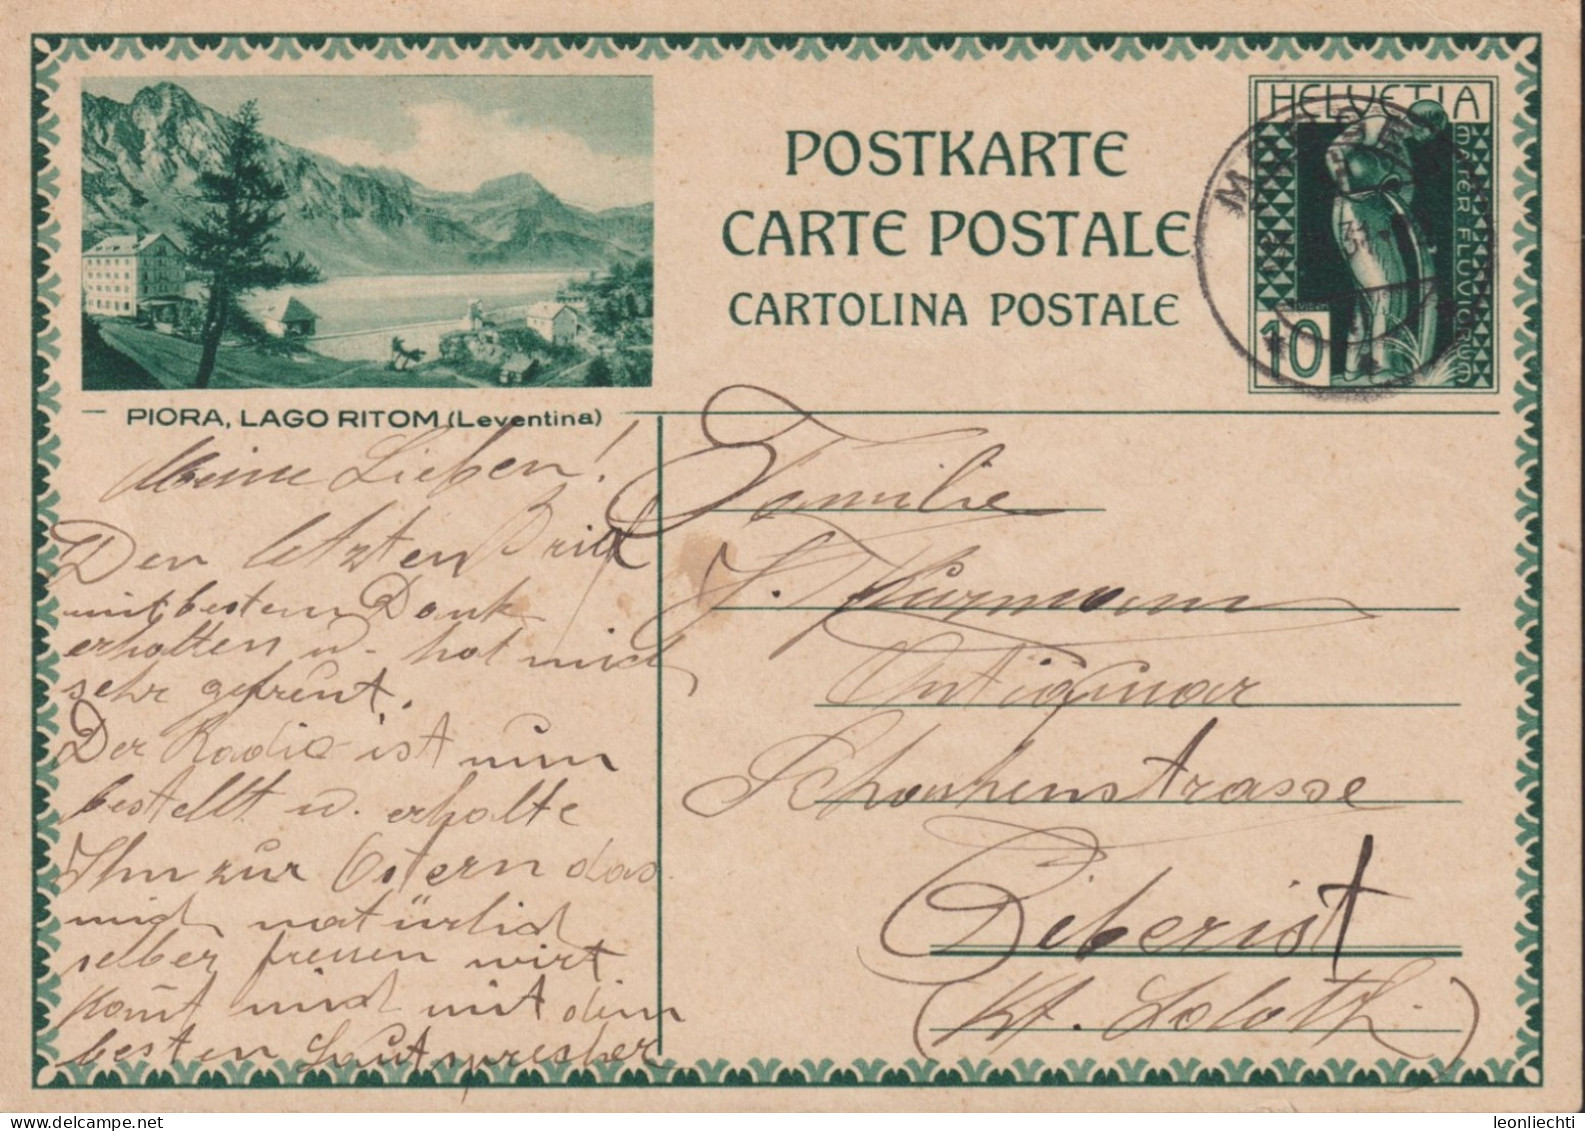 POSTKARTE
CARTE POSTALE
CARTOLINA POSTALE
HELVETIA
MATER FLUVIORUM
10
31
PIORA, LAGO RITOM (Leventina)
Meine Lieben!
Den letzten Brief
mit bestem Dank
erhalten u. hat mich
sehr gefreut.
Der Radio ist nun
bestellt u. erhalte
Ihn zur Ostern das
mich natürlich
selber freuen wirt
Komt mich mit dem
besten Lautsprecher
Familie
J. Thürmann
Antiquar
Schachenstrasse
Biberist
(Kt. Soloth.)
leonliechti